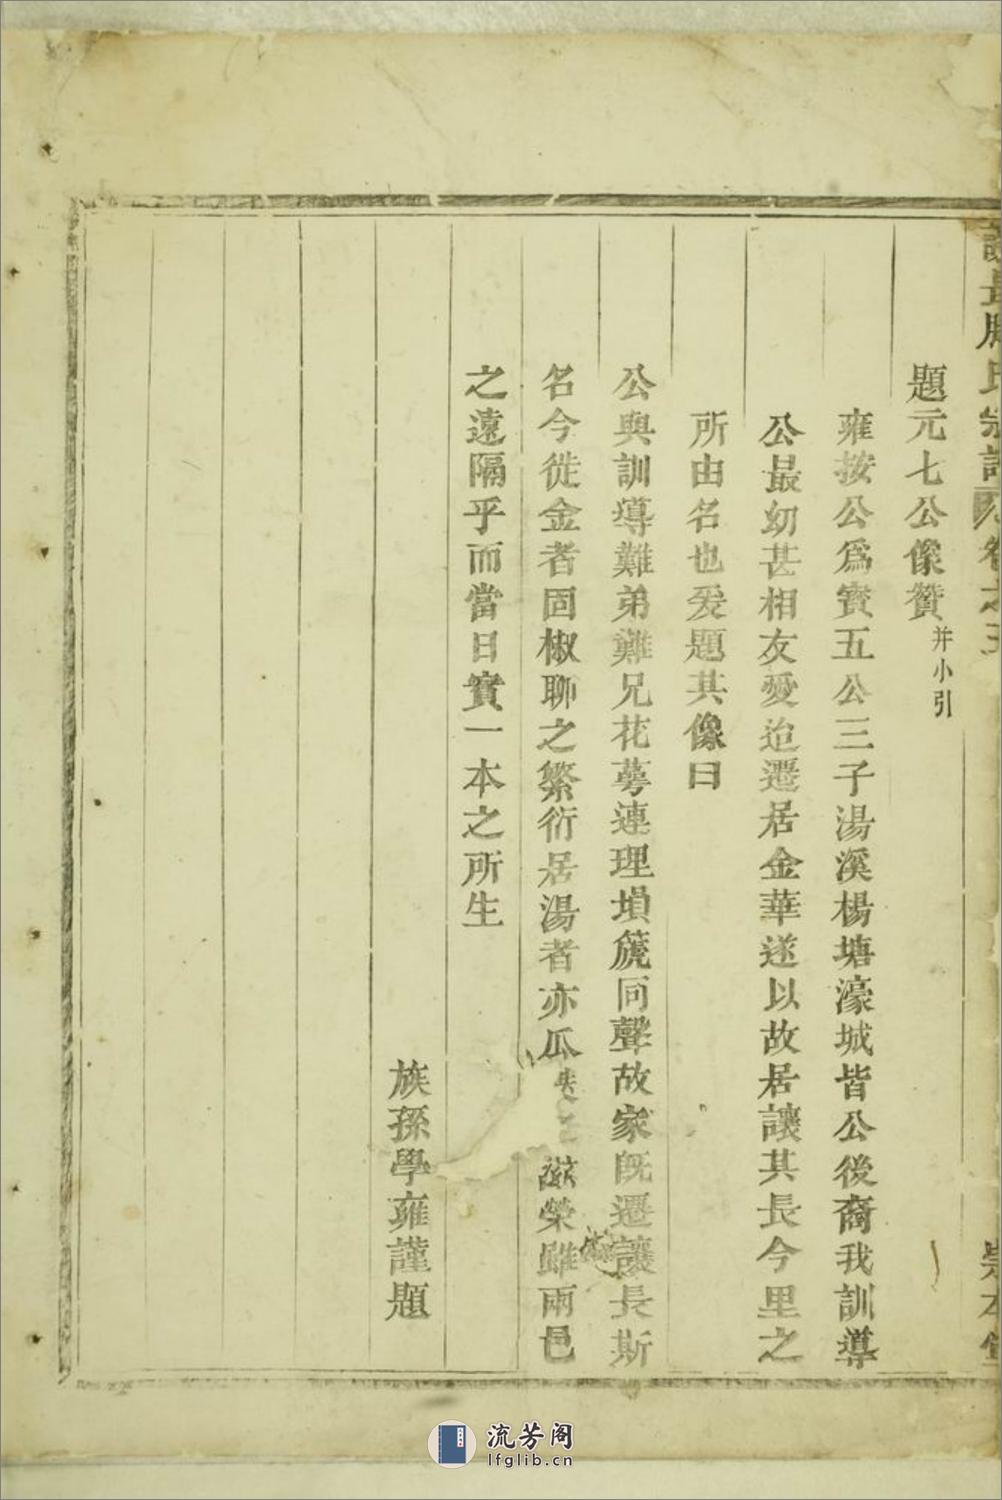 題元七公像贊并小引
雍按公爲寶五公三子湯溪楊塘濠城皆公後裔我訓導
公最幼甚相友愛迨遷居金華遂以故居讓其長今里之
所由名也爰題其像曰
公與訓導難弟難兄花萼連理塤篪同聲故家既遷讓長斯
名今徙金者固椒聊之繁衍居湯者亦瓜瓞滋榮雖兩邑
之遠隔乎而當日實一本之所生
族孫學雍謹題
流芳阁
lfglib.cn